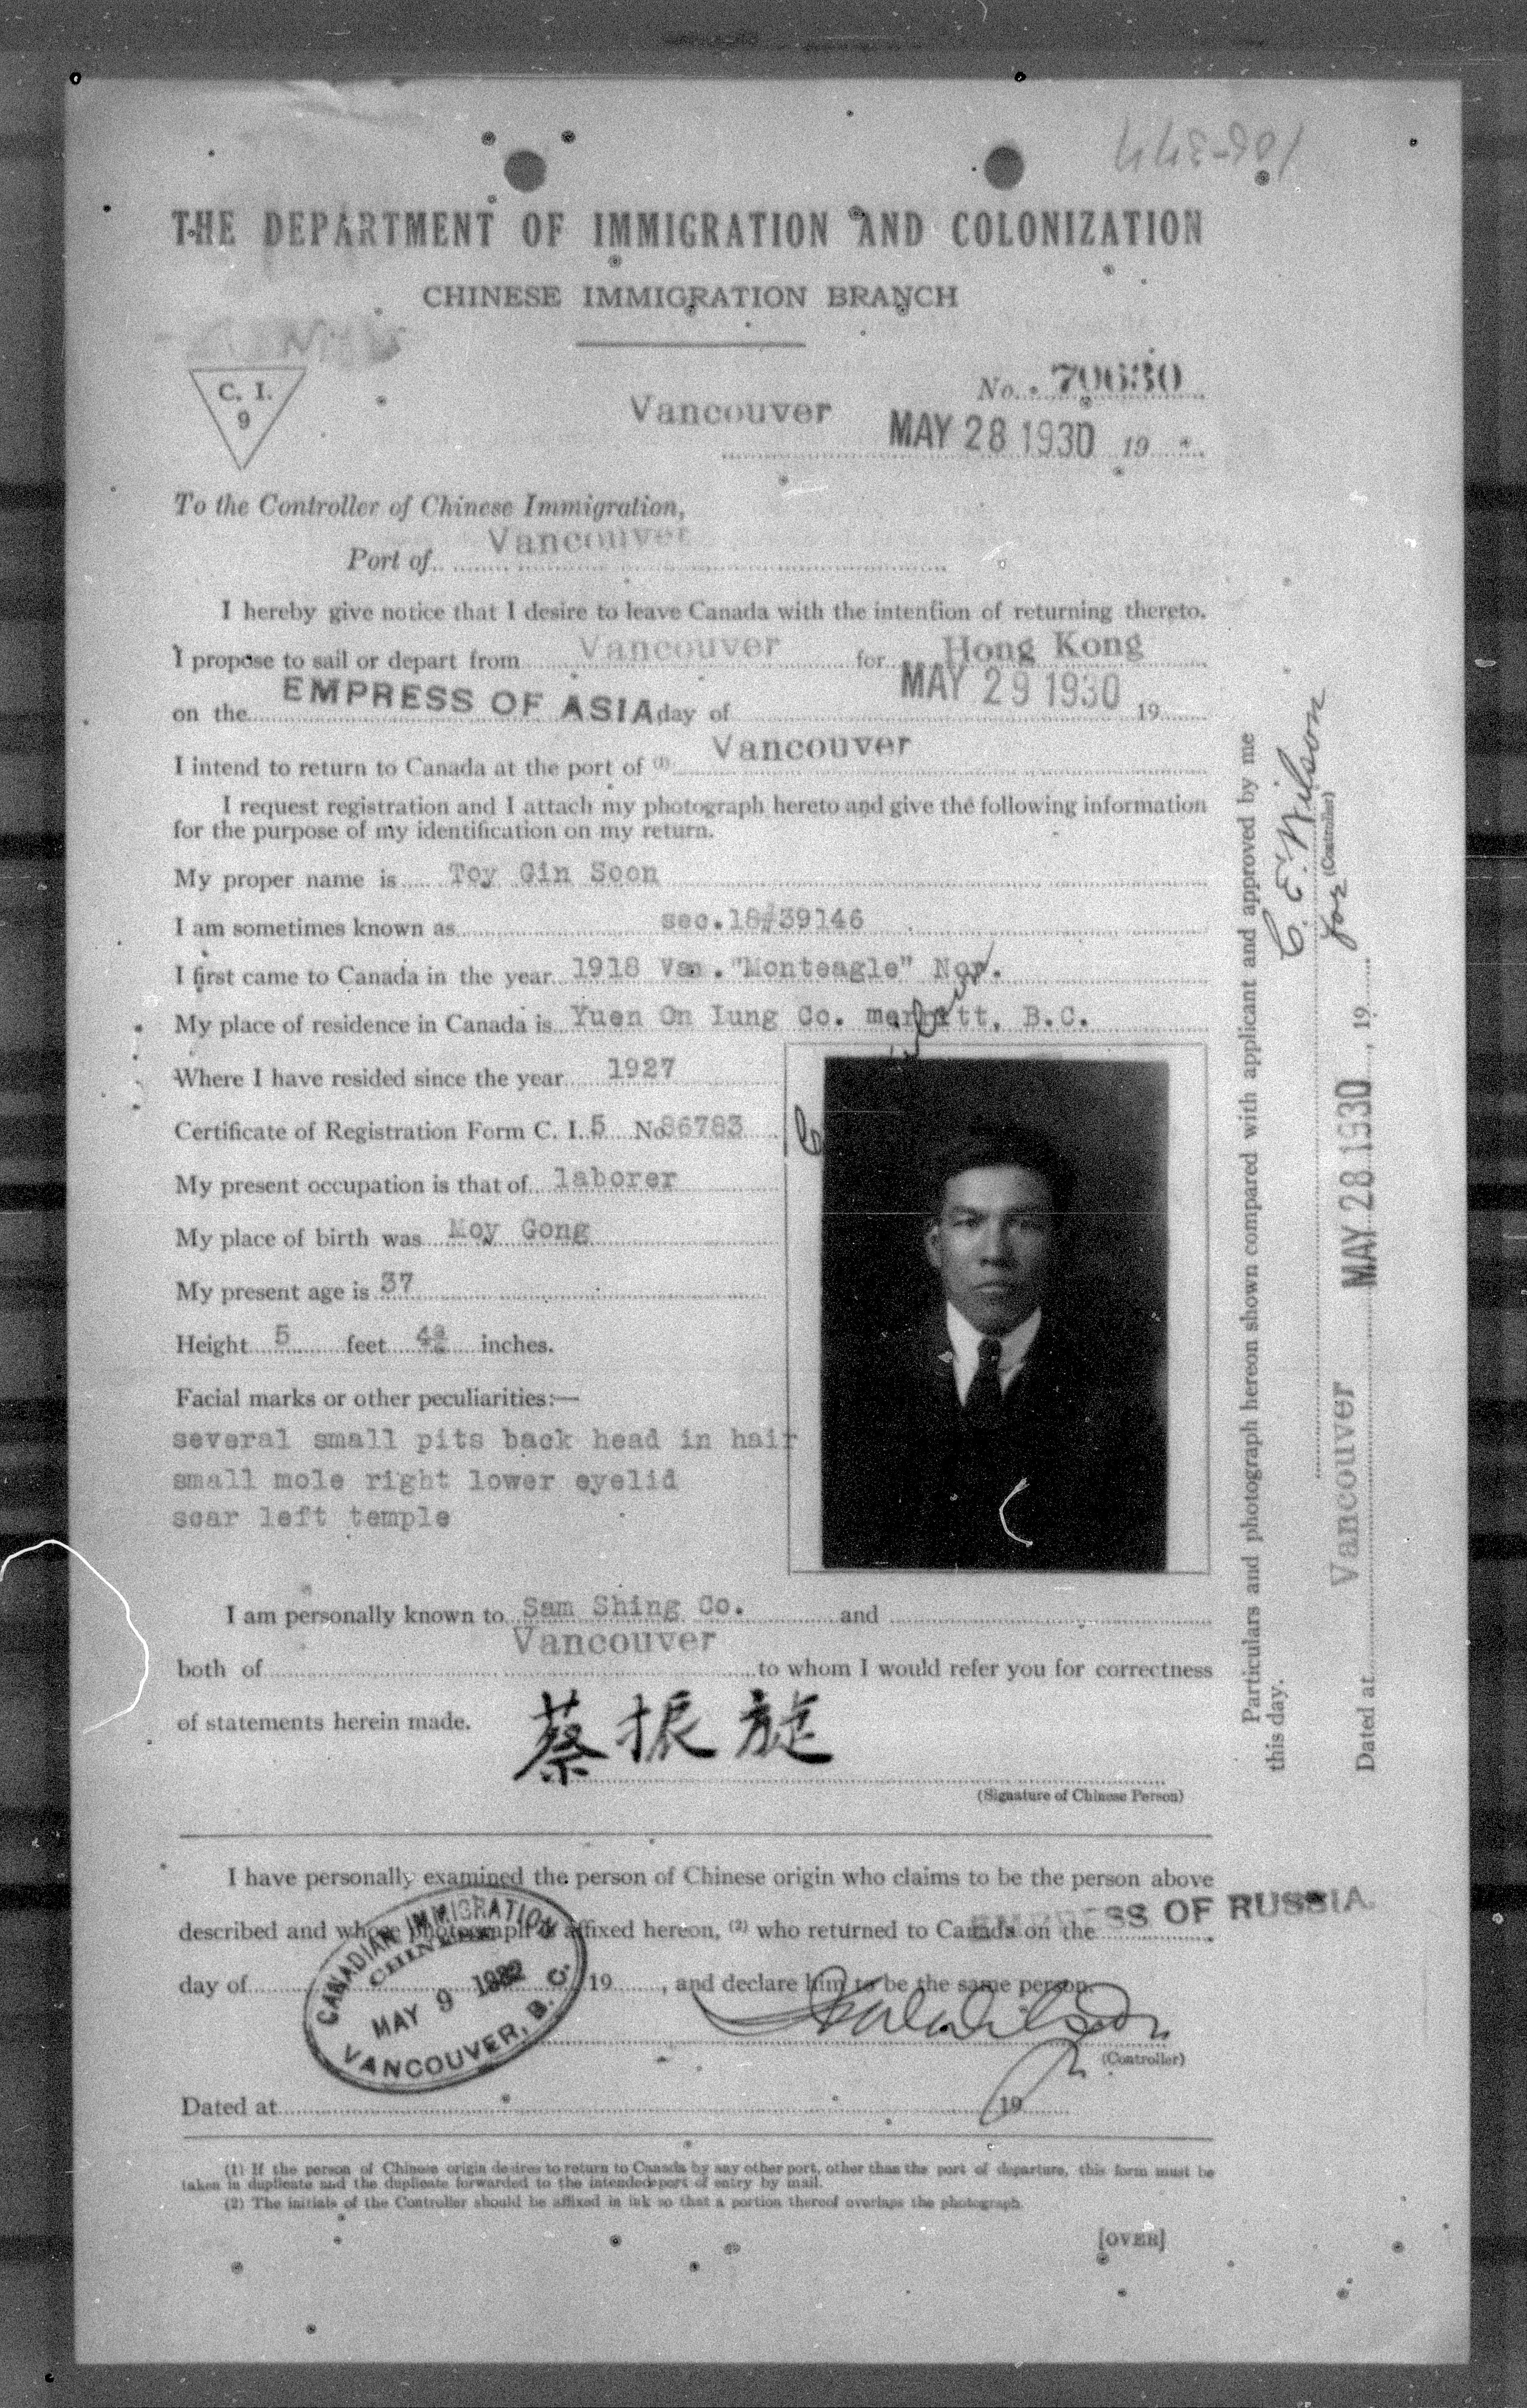 THE DEPARTMENT OF IMMIGRATION AND COLONIZATION
CHINESE IMMIGRATION BRANCH
C. I.
9
No. 70630
Vancouver MAY 28 1930 19
To the Controller of Chinese Immigration,
Port of Vancouver
I hereby give notice that I desire to leave Canada with the intention of returning thereto.
I propose to sail or depart from Vancouver for Hong Kong
on the EMPRESS OF ASIA day of MAY 29 1930 19
I intend to return to Canada at the port of (1) Vancouver
I request registration and I attach my photograph hereto and give the following information
for the purpose of my identification on my return.
My proper name is Toy Gin Soon
I am sometimes known as sec.18#39146
I first came to Canada in the year 1918 Van. "Monteagle" Nov.
My place of residence in Canada is Yuen On Lung Co. merritt, B.C.
Where I have resided since the year 1927
Certificate of Registration Form C. I. 5 No 86783
My present occupation is that of laborer
My place of birth was Moy Gong
My present age is 37
Height 5 feet inches.
Facial marks or other peculiarities:—
several small pits back head in hair
small mole right lower eyelid
scar left temple
I am personally known to Sam Shing Co. and
both of Vancouver to whom I would refer you for correctness
of statements herein made.
蔡振旋
(Signature of Chinese Person)
I have personally examined the person of Chinese origin who claims to be the person above
described and whose photograph is affixed hereon, (2) who returned to Canada on the EMPRESS OF RUSSIA.
day of 19 , and declare him to be the same person.
CANADIAN IMMIGRATION
CHINESE
MAY 9 1932
VANCOUVER, B. C.
(Controller)
Dated at 19
(1) If the person of Chinese origin desires to return to Canada by any other port, other than the port of departure, this form must be
taken in duplicate and the duplicate forwarded to the intended port of entry by mail.
(2) The initials of the Controller should be affixed in ink so that a portion thereof overlaps the photograph.
[OVER]
Particulars and photograph hereon shown compared with applicant and approved by me
this day.
C. E. Wilson
for (Controller)
Dated at Vancouver MAY 28 1930 , 19